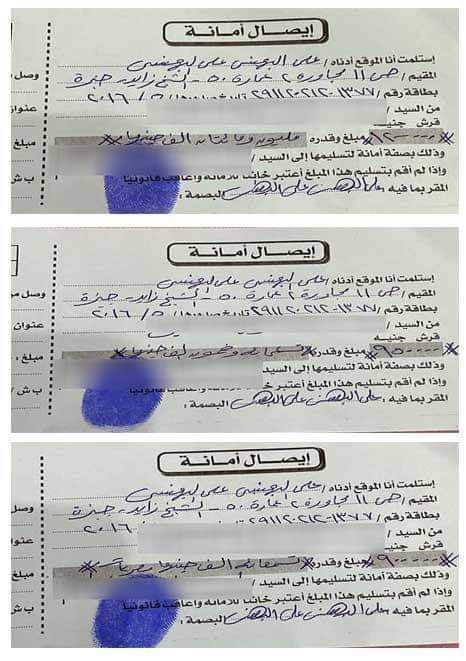 إيصال أمانة
إستلمت أنا الموقع أدناه / على البهنسى على البهنسى
المقيم / حى ١١ مجاورة ٢ عمارة ٥٠ - الشيخ زايد - جيزة
بطاقة رقم / ٢٩١١٢٠٢١٢٠١٣٧٧ ٢٠١٦/٥
من السيد /
قرش جنيه
١٢٠٠٠٠٠ مبلغ وقدره مليون ومائتان الف جنيها
وذلك بصفة أمانة لتسليمها إلى السيد /
وإذا لم أقم بتسليم هذا المبلغ أعتبر خائنا للأمانة وأعاقب قانونيا
المقر بما فيه / على البهنسى على البهنسى البصمة :
وصل
عنوان
مبلغ
ب ش
إيصال أمانة
إستلمت أنا الموقع أدناه / على البهنسى على البهنسى
المقيم / حى ١١ مجاورة ٢ عمارة ٥٠ - الشيخ زايد - جيزة
بطاقة رقم / ٢٩١١٢٠٢١٢٠١٣٧٧ ٢٠١٦/٥
من السيد /
قرش جنيه
٩٥٠٠٠٠ مبلغ وقدره تسعمائه وخمسون الف جنيها
وذلك بصفة أمانة لتسليمها إلى السيد /
وإذا لم أقم بتسليم هذا المبلغ أعتبر خائنا للأمانة وأعاقب قانونيا
المقر بما فيه / على البهنسى على البهنسى البصمة :
وصل من
عنوان
مبلغ
ب ش /
إيصال أمانة
إستلمت أنا الموقع أدناه / على البهنسى على البهنسى
المقيم / حى ١١ مجاورة ٢ عمارة ٥٠ - الشيخ زايد - جيزة
بطاقة رقم / ٢٩١١٢٠٢١٢٠١٣٧٧ ٢٠١٦
من السيد /
قرش جنيه
٩٠٠٠٠٠ مبلغ وقدره تسعمائه الف جنيها مصريا
وذلك بصفة أمانة لتسليمها إلى السيد /
وإذا لم أقم بتسليم هذا المبلغ أعتبر خائنا للأمانة وأعاقب قانونيا
المقر بما فيه / على البهنسى على البهنسى البصمة :
وصل
عنوان
مبلغ
ب ش